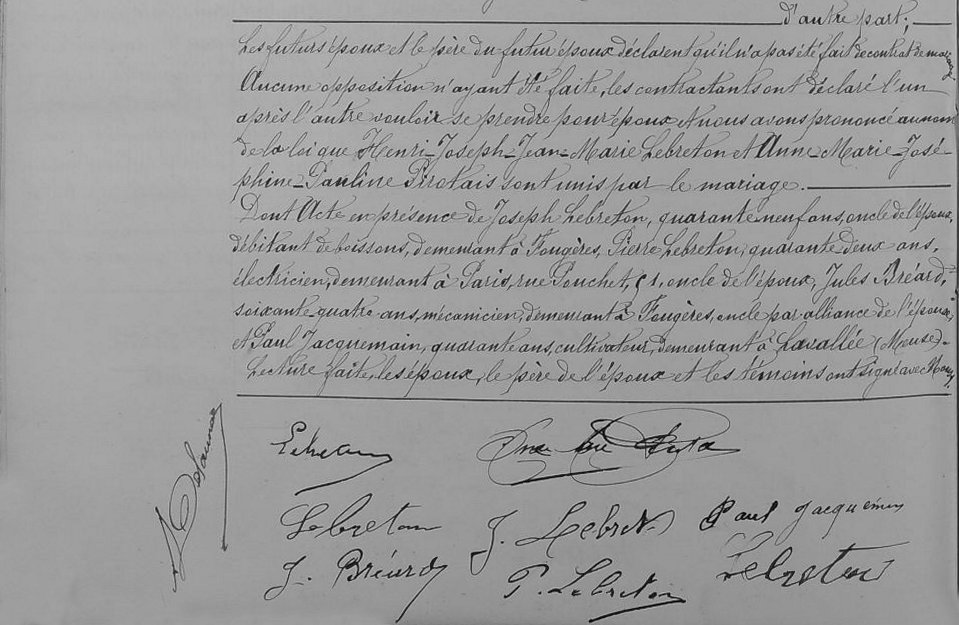 d'autre part;
Les futurs époux et le père du futur époux déclarent qu'il n'a pas été fait de contrat de mariage
Aucune opposition n'ayant été faite, les contractants ont déclaré l'un
après l'autre vouloir se prendre pour époux et nous avons prononcé au nom
de la loi que Henri-Joseph-Jean-Marie Lebreton et Anne Marie-José-
phine-Pauline Pirotais sont unis par le mariage.
Dont Acte en présence de Joseph Lebreton, quarante-neuf ans, oncle de l'époux,
débitant de boissons, demeurant à Fougères, Pierre Lebreton, quarante-deux ans,
électricien, demeurant à Paris, rue Pouchet, 51, oncle de l'époux, Jules Bréard,
soixante-quatre ans, mécanicien, demeurant à Fougères, oncle par alliance de l'épouse,
et Paul Jacquemain, quarante ans, cultivateur, demeurant à Lavallée (Meuse)-
Lecture faite, les époux, le père de l'époux et les témoins ont signé avec Nous.
Delaunay
Lebreton J. Lebreton Paul Jacquemin
J. Bréard P. Lebreton Lebreton